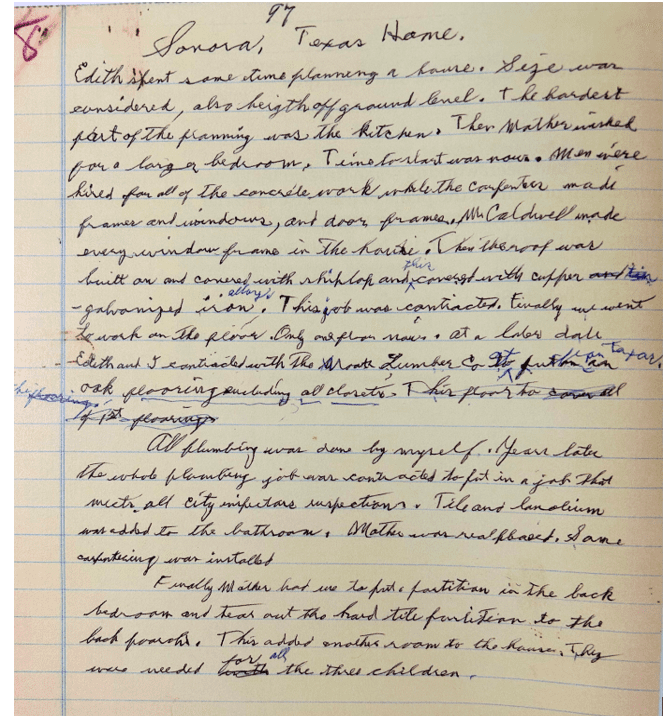 97
Sonora, Texas Home.
Edith spent some time planning a house. Size was
considered, also heigth off ground level. The hardest
part of the planning was the kitchen. Then Mother wished
for a large bedroom. Time to start was now. Men were
hired for all of the concrete work while the carpenter made
frames and windows, and door frames. Mr Caldwell made
every window frame in the house. Then the roof was
built on and covered with shiplap and this covered with copper and tin
galvanized iron alloys. This job was contracted. Finally we went
to work on the floor. Only one floor now. at a later date
Edith and I contracted with the Lumber Co to put on an
oak flooring including all closets. This floor to cover all
of 1st flooring
All plumbing was done by myself. Years later
the whole plumbing job was contracted to put in a job that
meets all city inspectors inspections. Tile and linolium
was added to the bathroom. Mother was real pleased. Some
carpeting was installed
Finally Mother had me to put a partition in the back
bedroom and tear out the hard tile partition to the
back poarch. This added another room to the house. They
were needed for all the three children.